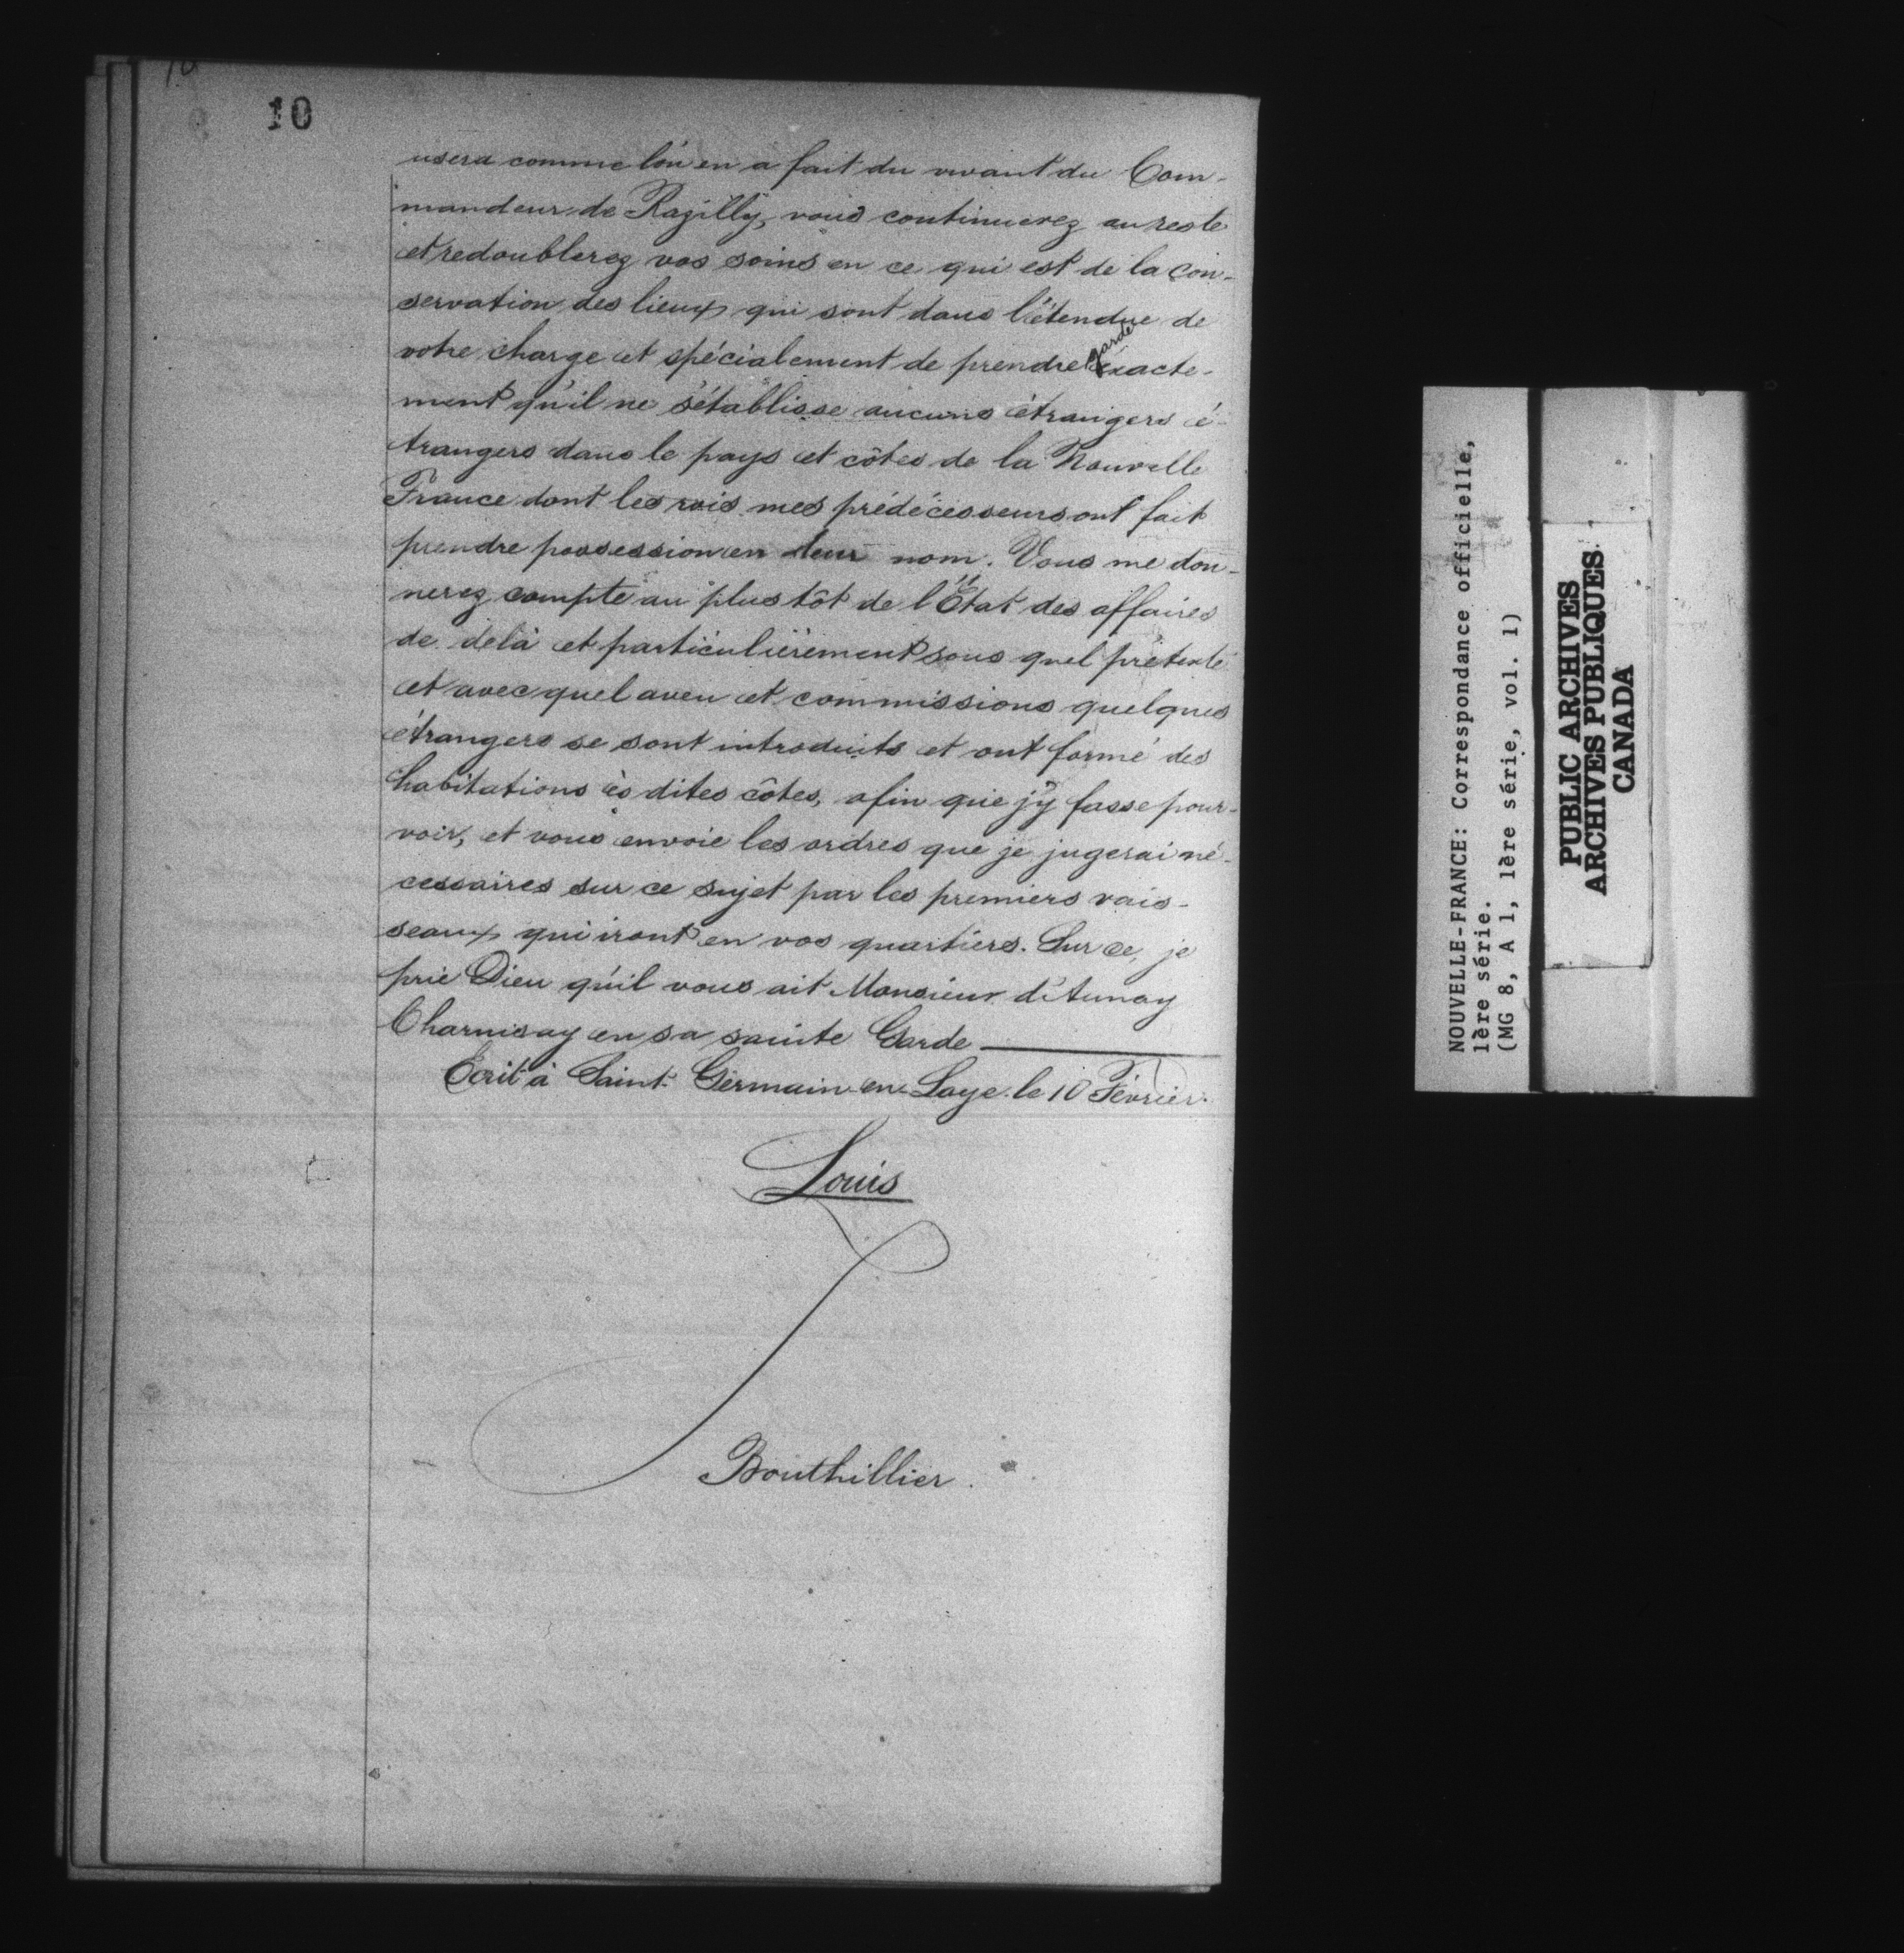 10
usera comme l'on en a fait du vivant du Com-
mandeur de Razilly, vous continuerez au reste
et redoublerez vos soins en ce qui est de la con-
servation des lieux qui sont dans l'étendue de
votre charge et spécialement de prendre garde exacte-
ment qu'il ne s'établisse aucuns étrangers é-
trangers dans le pays et côtes de la Nouvelle
France dont les rois mes prédécesseurs ont fait
prendre possession en leur nom. Vous me don-
nerez compte au plus tôt de l'État des affaires
de delà et particulièrement sous quel prétexte
et avec quel aveu et commissions quelques
étrangers se sont introduits et ont formé des
habitations ès dites côtes, afin que j'y fasse pour-
voir, et vous envoie les ordres que je jugerai né-
cessaires sur ce sujet par les premiers vais-
seaux qui iront en vos quartiers. Sur ce, je
prie Dieu qu'il vous ait Monsieur d'Aunay
Charnisay en sa sainte Garde
Ecrit à Saint-Germain-en-Laye le 10 Février.
Louis
Bouthillier.
NOUVELLE-FRANCE: Correspondance officielle,
1ère série.
(MG 8, A 1, 1ère série, vol. 1)
PUBLIC ARCHIVES
ARCHIVES PUBLIQUES
CANADA